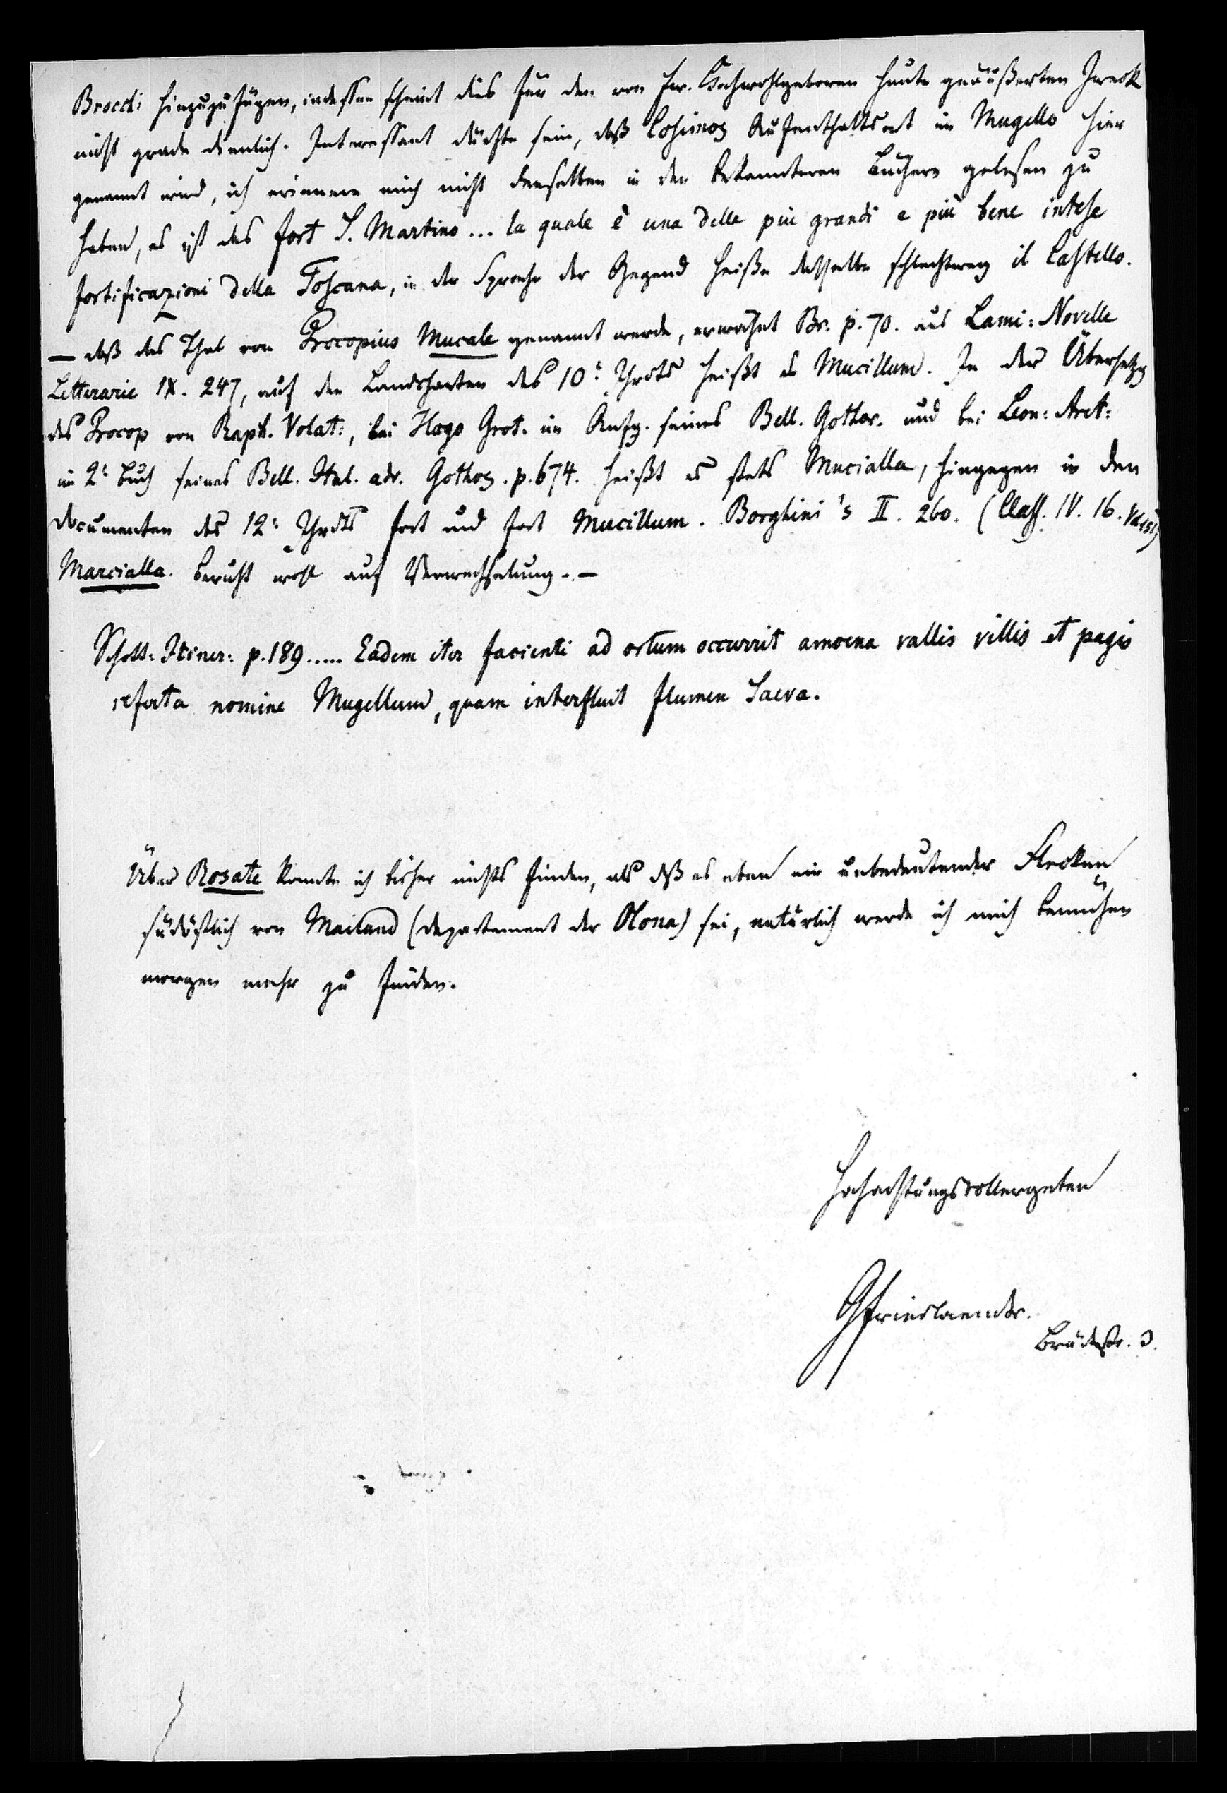 Brocchi hinzuzufügen, indessen scheint dies für den von Ew. Hochwohlgeboren heute geäußerten Zweck
nicht grade dienlich. Interessant dürfte sein, daß Cosimos Aufenthaltsort im Mugello hier
genannt wird, ich erinnere mich nicht denselben in den bekannteren Büchern gelesen zu
haben, es ist das fort S. Martino ... la quale è una delle più grandi e più bene intese
fortificazioni della Toscana, in der Sprache der Gegend heiße dasselbe schlechtweg il Castello.
— daß das Thal von Procopius Mucale genannt werde, erwähnt Br. p. 70. aus Lami: Novelle
Letterarie IX. 247, auf den Landcharten des 10t Jhrdts heißt es Mucillum. In der Übersetzg
des Procop von Raph. Volat:, bei Hugo Grot. im Anfg. seines Bell. Gothor. und bei Leon: Aret:
im 2t Buch seines Bell. Ital. adv. Gothos. p. 674. heißt es stets Mucialla, hingegen in den
documenten des 12t Jhrdts fort und fort Mucillum. Borghini's II. 260. (Class. IV. 16.
Marcialla. beruht wohl auf Verwechselung. —
Schott: Itiner: p. 189 ..... Eadem iter facienti ad ortum occurrit amoena vallis villis et pagis
referta nomine Mugellum, quam interfluit flumen Saeva.
Über Rosate konnte ich bisher nichts finden, als dß es eben ein unbedeutender Flecken
südöstlich von Mailand (departement der Olona) sei, natürlich werde ich mich bemühen
morgen mehr zu finden.
Hochachtungsvollergeben
GFriedlaender.
Brückstr. 3.